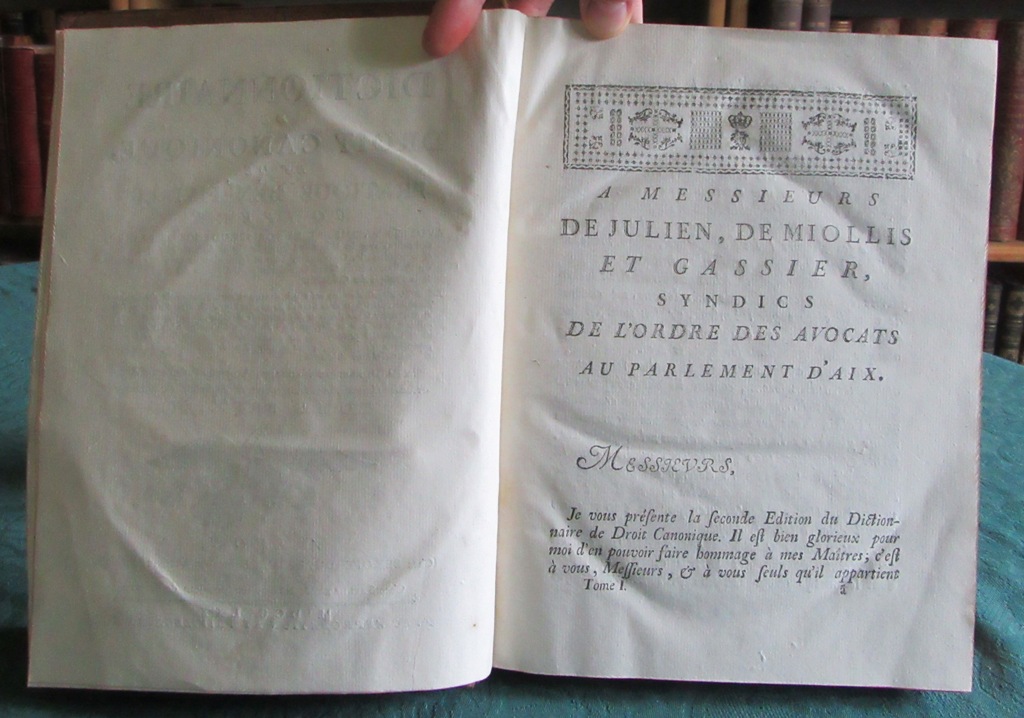 DICTIONNAIRE
A MESSIEURS
DE JULIEN, DE MIOLLIS
ET GASSIER,
SYNDICS
DE L'ORDRE DES AVOCATS
AU PARLEMENT D'AIX.
MESSIEVRS,
Je vous préſente la ſeconde Edition du Diction-
naire de Droit Canonique. Il eſt bien glorieux pour
moi d'en pouvoir faire hommage à mes Maîtres; c'eſt
à vous, Meſſieurs, & à vous ſeuls qu'il appartient
Tome I. a